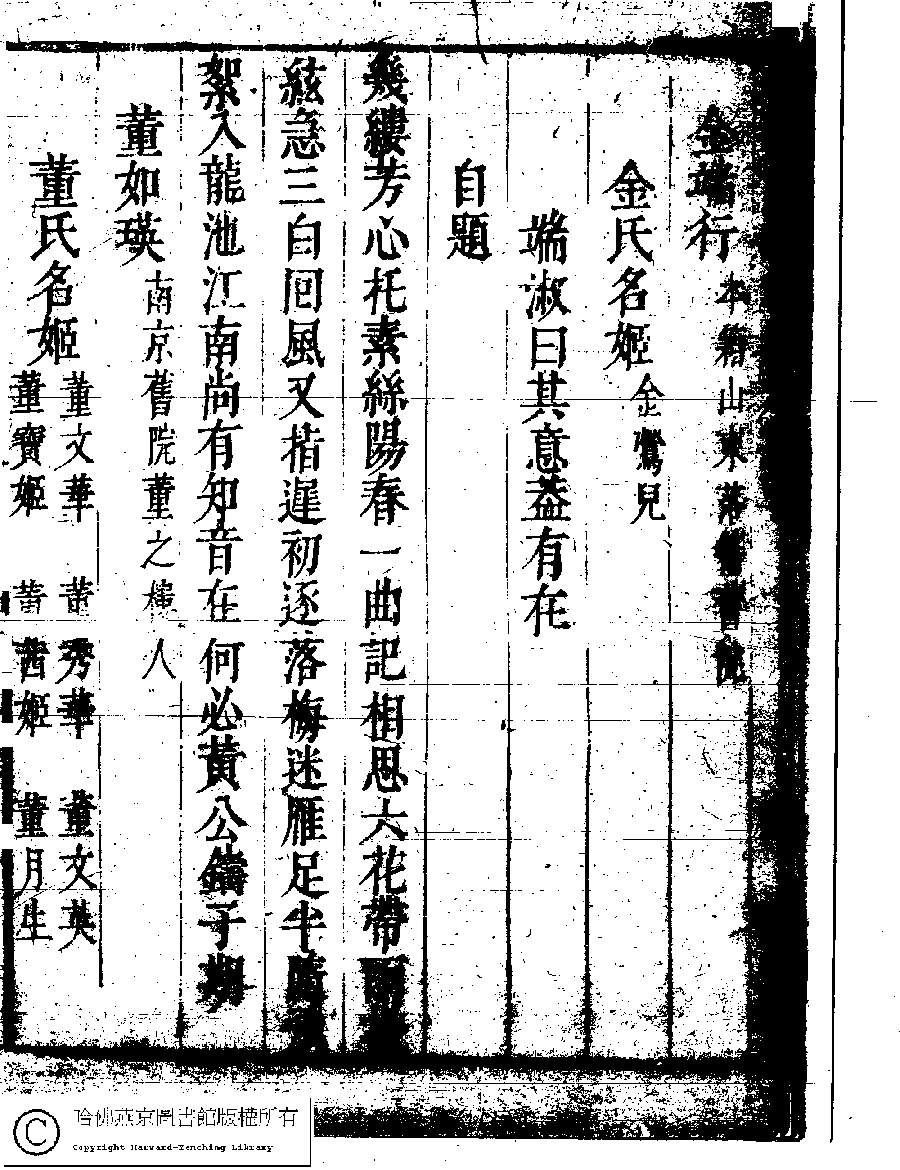 金端行 本籍山東落籍舊院
金氏名姬 金鶯兒
端淑曰其意葢有在
自題
幾縷芳心托素絲陽春一曲記相思六花帶雨
絃急三白囘風又指遲初逐落梅迷雁足半隨
絮入龍池江南尚有知音在何必黃公鑄子期
董如瑛 南京舊院董之樓人
董氏名姬 董文華 董秀華 董文英
董寶姬 董茜姬 董月生
哈佛燕京圖書館版權所有
Copyright Harvard-Yenching Library